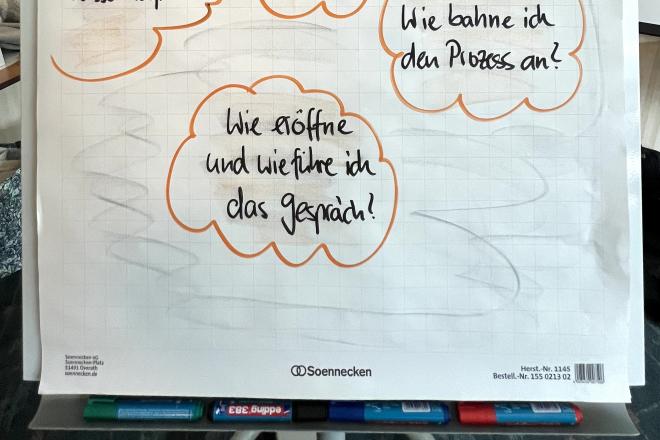 Wie bahne ich
den Prozess an?
Wie eröffne
und wie führe ich
das gespräch?
Soennecken eG
Soennecken-Platz
51491 Overath
soennecken.de
Soennecken
Herst.-Nr. 1145
Bestell.-Nr. 155 0213 02
edding 383